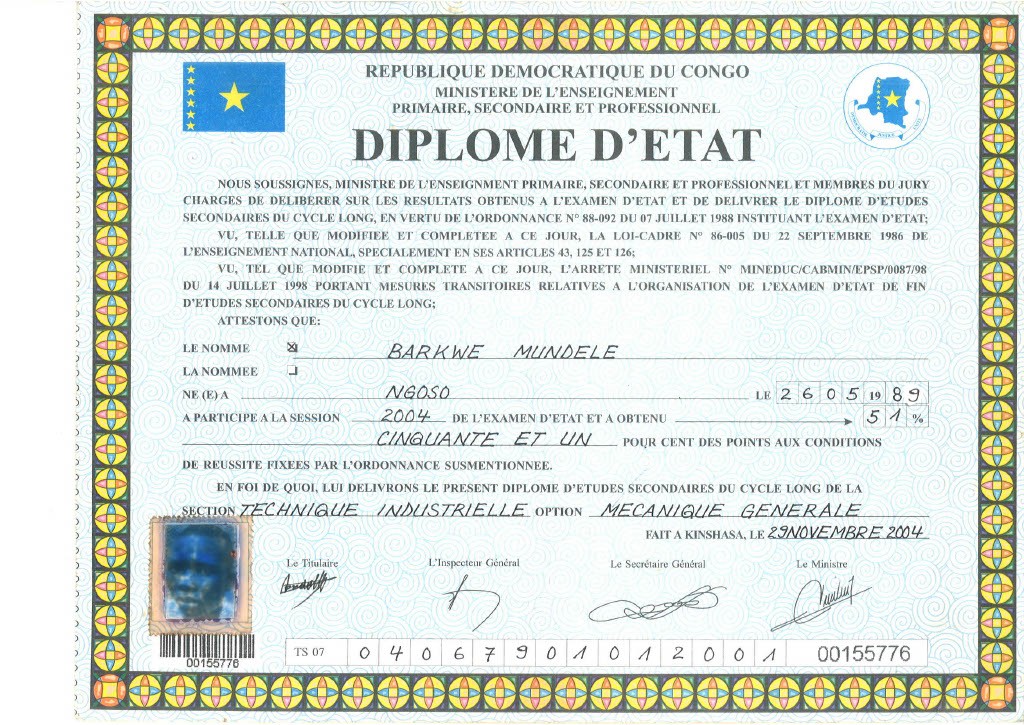 REPUBLIQUE DEMOCRATIQUE DU CONGO
MINISTERE DE L'ENSEIGNEMENT
PRIMAIRE, SECONDAIRE ET PROFESSIONNEL
DIPLOME D'ETAT
NOUS SOUSSIGNES, MINISTRE DE L'ENSEIGNMENT PRIMAIRE, SECONDAIRE ET PROFESSIONNEL ET MEMBRES DU JURY
CHARGES DE DELIBERER SUR LES RESULTATS OBTENUS A L'EXAMEN D'ETAT ET DE DELIVRER LE DIPLOME D'ETUDES
SECONDAIRES DU CYCLE LONG, EN VERTU DE L'ORDONNANCE N° 88-092 DU 07 JUILLET 1988 INSTITUANT L'EXAMEN D'ETAT;
VU, TELLE QUE MODIFIEE ET COMPLETEE A CE JOUR, LA LOI-CADRE N° 86-005 DU 22 SEPTEMBRE 1986 DE
L'ENSEIGNEMENT NATIONAL, SPECIALEMENT EN SES ARTICLES 43, 125 ET 126;
VU, TEL QUE MODIFIE ET COMPLETE A CE JOUR, L'ARRETE MINISTERIEL N° MINEDUC/CABMIN/EPSP/0087/98
DU 14 JUILLET 1998 PORTANT MESURES TRANSITOIRES RELATIVES A L'ORGANISATION DE L'EXAMEN D'ETAT DE FIN
D'ETUDES SECONDAIRES DU CYCLE LONG;
ATTESTONS QUE:
LE NOMME BARKWE MUNDELE
LA NOMMEE
NE (E) A NGOSO LE 26 05 19 89
A PARTICIPE A LA SESSION 2004 DE L'EXAMEN D'ETAT ET A OBTENU 51 %
CINQUANTE ET UN POUR CENT DES POINTS AUX CONDITIONS
DE REUSSITE FIXEES PAR L'ORDONNANCE SUSMENTIONNEE.
EN FOI DE QUOI, LUI DELIVRONS LE PRESENT DIPLOME D'ETUDES SECONDAIRES DU CYCLE LONG DE LA
SECTION TECHNIQUE INDUSTRIELLE OPTION MECANIQUE GENERALE
FAIT A KINSHASA, LE 29 NOVEMBRE 2004
Le Titulaire L'Inspecteur Général Le Secrétaire Général Le Ministre
00155776
TS 07 04067901012001 00155776